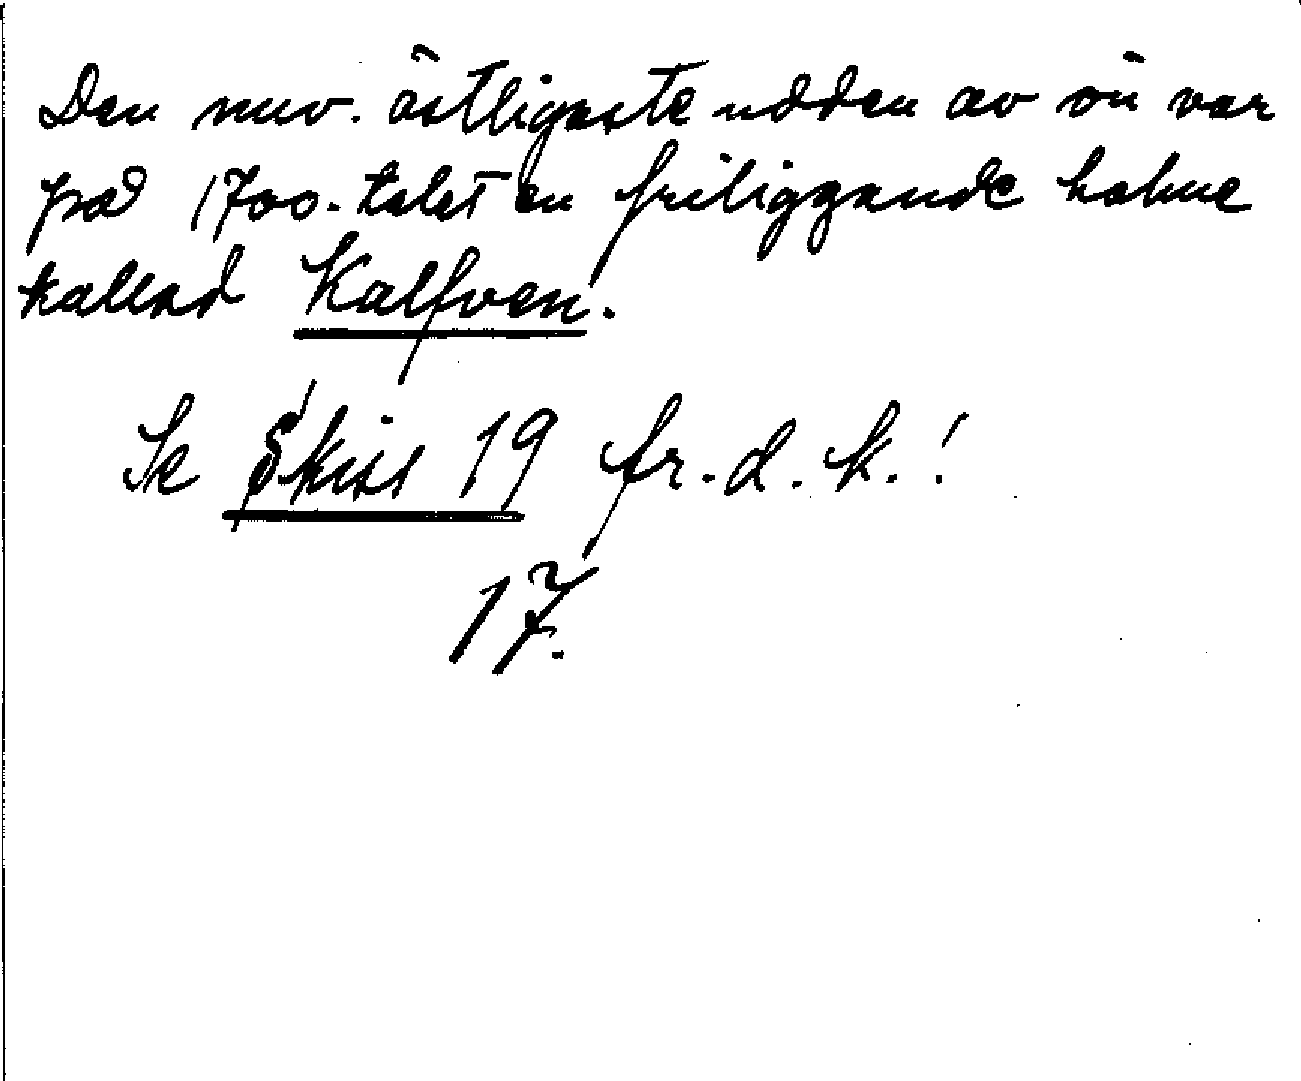 Den nuv. östligaste udden av ön var
på 1700-talet en friliggande holme
kallad Kalfven.
Se Skiss 19 fr. d. k.!
17.